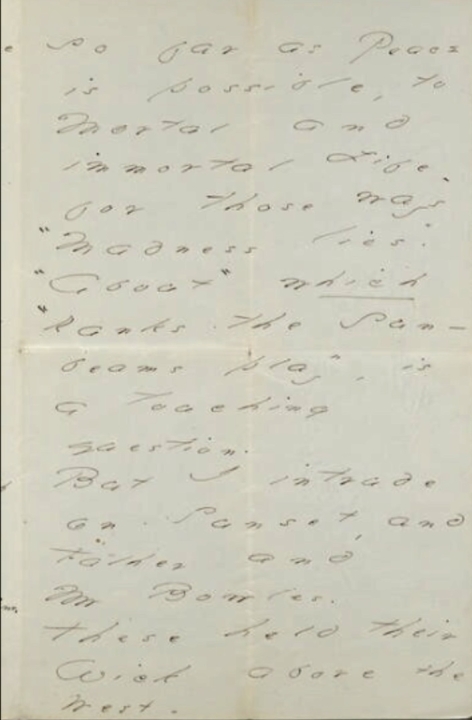 So far as Peace
is possible, to
Mortal and
immortal Life,
for those ways
"Madness lies."
"About" which
"ranks the Sun-
beams play", is
a touching
question.
But I intrude
on Sunset, and
Father and
Mr Bowles.
These held their
Wick above the
West.